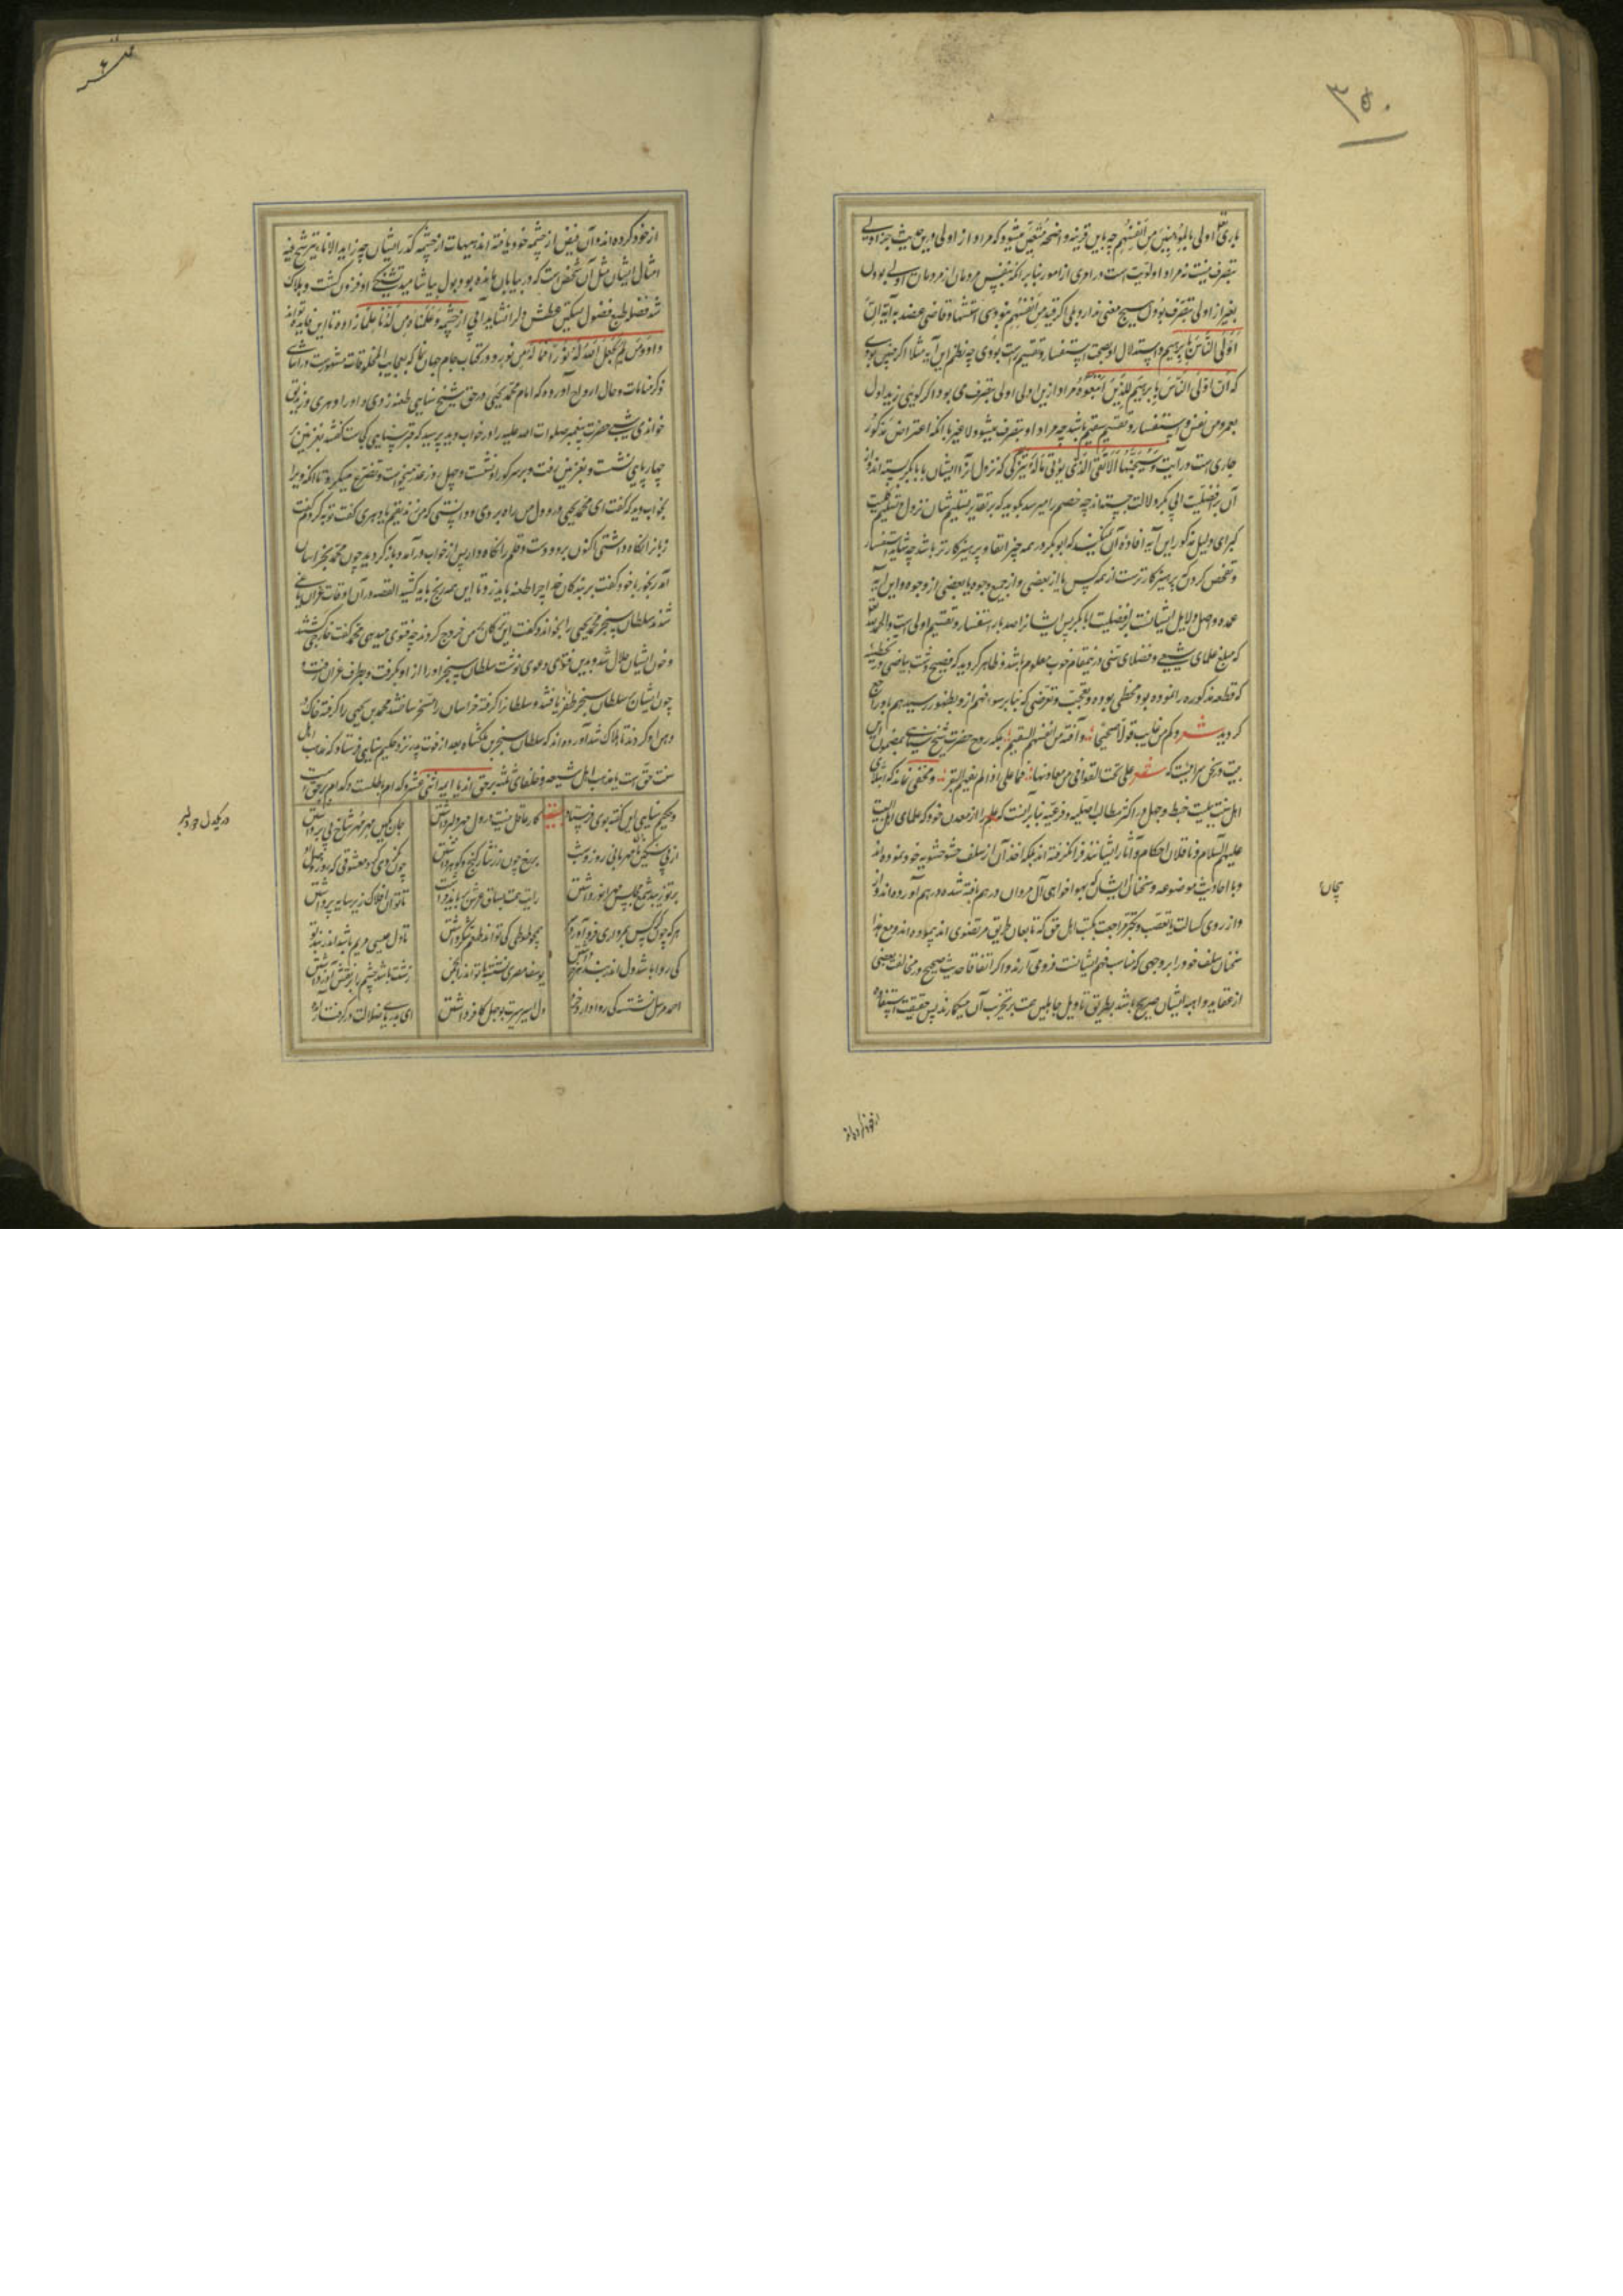 ۳۵۰
باری تع اولی بالمؤمنین من انفسهم چه باین قرینه واضحه متعین میشود که مراد از اولی درین حدیث جز اولی
بتصرف نیست نه مراد اولویت است در امری از امور بنابر آنکه بنفس مردمان از مردمان اولی بودن
بغیر از اولی بتصرف بودن هیچ معنی ندارد بلی اگر قید من انفسهم نبودی استشهاد قاضی عضد بآیه ان
اولی الناس بابرهیم و استدلال او بصحت استفسار و تقسیم درست بودی چه نظم این آیه مثلا اگر چنین بودی
که ان اولی الناس بابرهیم للذین اتبعوه مراد ازین اولی اولی بتصرف می بود اگر گویی زید اولی
بعمرو من نفسی و استفسار و تقسیم سقیم باشد چه مراد اولی بتصرف میشود لا غیر با آنکه اعتراض مذکور
جاری است در آیت و سیجنبها الاتقی الذی یؤتی ماله یتزکی که نزول آنرا ایشان بابابکر بسته اند و از
آن بر افضلیت ابی بکر دلالت جسته اند چه خصم را میرسد که بگوید که بر تقدیر تسلیم شان نزول و تسلیم کلیت
کبرای دلیل مذکور این آیه افاده آن نمیکند که ابوبکر در همه چیز اتقا و پرهیزکارتر باشد چه شاید استفسار
و تفحص کردن که پرهیزکارتر است از همه کس یا از بعضی و از جمیع وجوه یا بعضی از وجوه و این آیه
عمده و اصل دلایل ایشانست بر افضلیت ابابکر پس ایشانرا صد بار استفسار و تقسیم اولی است والحمد لله
که مبلغ علمای شیعی و فضلای سنی درینمقام خوب معلوم باشد و ظاهر گردید که فصیح دشت بیاضی در تخطیه
که قطعه مذکوره را نموده بود مخطی بوده و تعجب و تعرضی که بنابر سوء فهم ازو بظهور رسیده هم باو راجع
گردید شعر و کم من عایب قولا صحیحا و آفته من الفهم السقیم بلکه روح حضرت شیخ سنایی بمضمون این
بیت در حق سراییست که شعر علی نحت القوافی من معادنها فما علی اذا لم یفهم البقر و مخفی نماند که ابتلای
اهل سنت ببلیت خبط و جهل در اکثر مطالب اصلیه و فرعیه بنابر آنست که علم را از معدن خود که علمای اهل البیت
علیهم السلام و ناقلان احکام و آثار ایشانند فرا نگرفته اند بلکه اخذ آن از سلف حشو حشویه خود نموده اند
و با احادیث موضوعه و سخنان ایشان که بهواخواهی آل مروان درهم بافته شده درهم آورده اند و از
و از روی کسالت یا تعصب و تکبر مراجعت بکتب اهل حق که تابعان طریق مرتضوی اند نپیموده اند و مع هذا
سخنان سلف خود را بر وجهی که مناسب فهم ایشانست فرو می آرند و اگر اتفاقا حدیث صحیح در مخالفت بعضی
از عقاید واهیه ایشان صریح باشد بطریق تاویل جاهلین همت بر تخریب آن میگمارند پس حقیقت استفاده
از خود کرده اند و آن فیض از چشمه خود یافته اند هیهات از چشمه کدر ایشان چه زاید الاناء یترشح بما فیه
امثال ایشان مثل آن شخص است که در بیابان مانده بود بول بیاشامید تشنگی او فزون گشت و هلاک
شد فضله طبع فضول تسکین عطش دل را نشاید آبی از چشمه و علمناه من لدنا علما زاده تا این فایده تواند
داد و من لم یجعل الله له نورا فما له من نور و در کتاب جام جهان نما که بعجایب المخلوقات مشهورست در اثنای
ذکر منامات و حال ارواح آورده که امام محمد یحیی در حق شیخ سنایی طعنه زدی و او را دهری و زندیق
خواندی شبی حضرت پیغمبر صلوات الله علیه را در خواب دید پرسید که قبر سنایی کجاست گفتند بغزنین بر
چهارپایی نشست و بغزنین رفت و بر سر گور او نشست و چهل روز عذر میخواست و تضرع میکرد تا آنکه ویرا
بخواب دید که گفت ای محمد یحیی در اول من راه بردی و دانستی که من زندیقم یا دهری گفت توبه کردم گفت
زبانرا نگاه داشتی اکنون برو و دست و قلم را نگاه دار پس از خواب درآمد و باز گردید چون محمد بخراسان
آمد رنجور با خود گفت بر بندگان خدا چرا طعنه باید زد تا این همه رنج باید کشید القصه در آن اوقات غزان یاغی
شدند سلطان سنجر محمد یحیی را بخواند و گفت این ترکان بر من خروج کردند چه فتوی میدهی محمد گفت خارجی گشتند
و خون ایشان حلال شد و بدین فتوی و دعوی نوشت سلطان سنجر او را از او بگرفت و بطرف غزان رفت و
چون ایشان بر سلطان سنجر ظفر یافتند و سلطانرا گرفته خراسان را مسخر ساختند محمد بن یحیی را گرفته خاک در
دهن او کردند تا هلاک شد آورده اند که سلطان سنجر بن ملکشاه بعد از فوت پدر نزد حکیم سنایی فرستاد که مذهب اهل
سنت حق است یا مذهب اهل شیعه و خلفای ثلثه بر حق اند یا ایمه اثنی عشر و کدام باطلست و کدام بر حق است
و حکیم سنایی این گفته بوی فرستاد قصیده کار عاقل نیست در دل مهر دلبر داشتن جان نگین مهر مهر شاخ بی بر داشتن
از پی سنگین دل نامهربانی روز و شب بر رخ چون زر نثار گنج و گوهر داشتن چون نگردی گرد معشوقی که روز وصل او
بر تو زیبد شمع مجلس مهر انور داشتن رایت همت بساق عرش بر باید فراشت تا توان افلاک زیر سایه پر داشتن
هر که چون کرکس بمرداری فرو آورد سر همچو طوطی کی تواند طعم شکر داشتن تا دل عیسی مریم باشد اندر بند تو
کی روا باشد دل اندر بند هر خر داشتن یوسف مصری نشسته با تو اندر انجمن زشت باشد چشم را بر نقش آزر داشتن
احمد مرسل نشسته کی روا دارد خرد دل اسیر سیرت بوجهل کافر داشتن ای بدریای ضلالت در گرفتار آمده